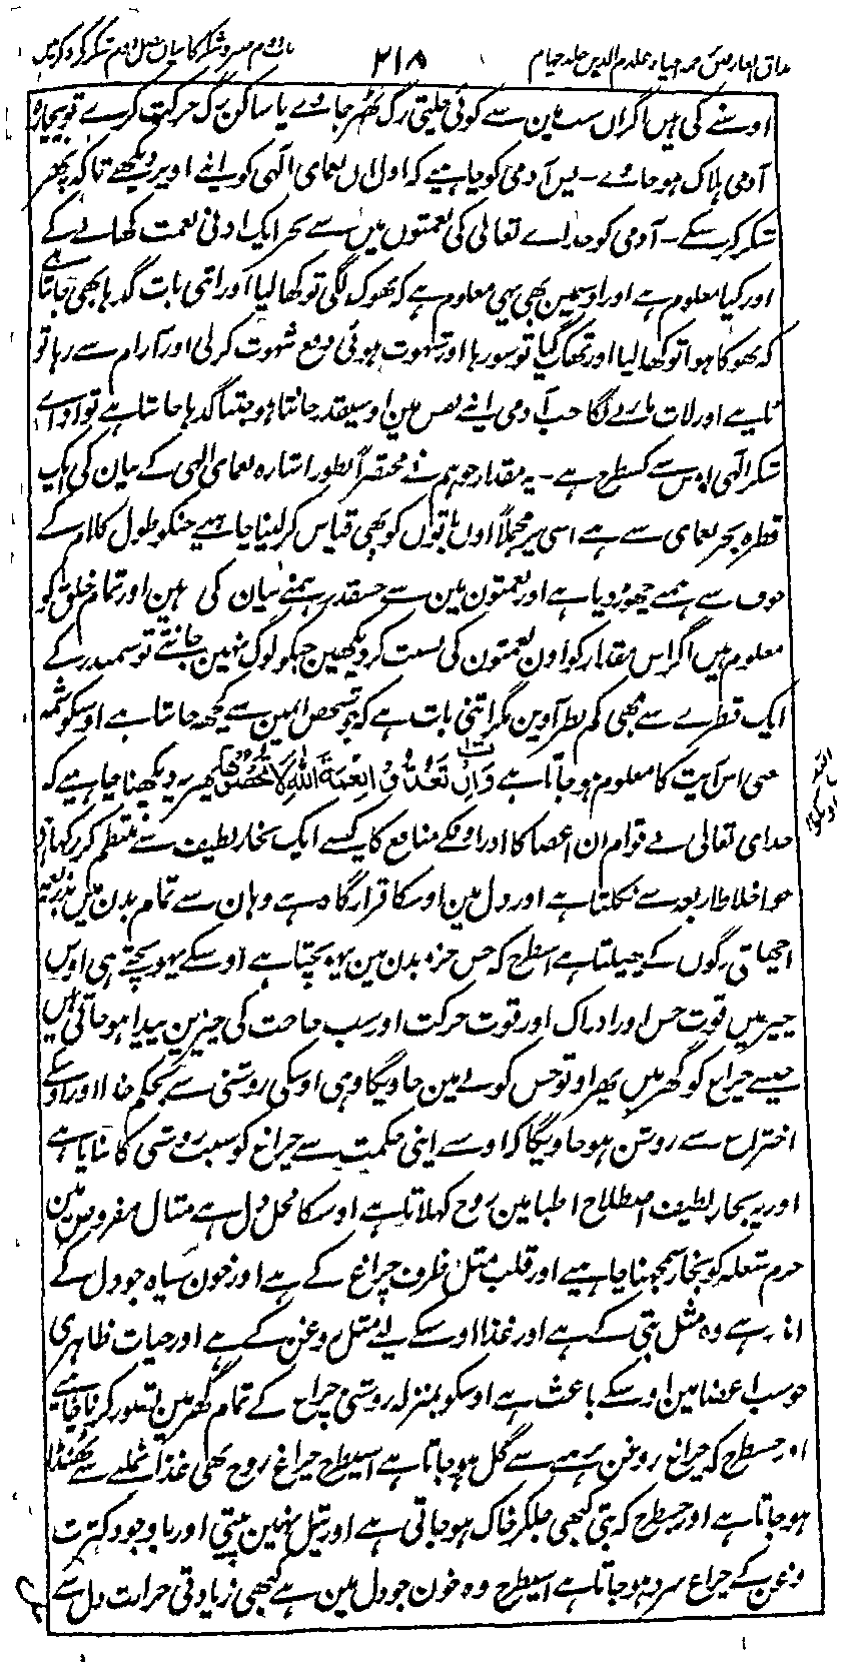 مذاق العارفین ترجمہ احیاء علوم الدین جلد چہارم
۲۱۸
باب دوم صبر و شکر کا بیان فصل دوم شکر کے ذکر میں
اوسنے کی ہیں اگر ان سب مین سے کوئی چلتی رگ ٹھہر جاوے یا ساکن رگ حرکت کرے تو بیچارہ
آدمی ہلاک ہو جاوے۔ پس آدمی کو چاہیے کہ اول ان نعمای الٰہی کو اپنے اوپر دیکھے تاکہ پھر
شکر کر سکے۔ آدمی کو خداے تعالی کی نعمتوں میں سے بجز ایک ادنی نعمت کھانے کے
اور کیا معلوم ہے اور اوسمین بھی یہی معلوم ہے کہ بھوک لگی تو کھا لیا اور اتنی بات گدہا بھی جانتا ہے
کہ بھوکا ہوا تو کھا لیا اور تھک گیا تو سو رہا اور شہوت ہوئی دفع شہوت کر لی اور آرام سے رہا تو
اور لات مارنے لگا جب آدمی اپنے نفس مین اوسیقدر جانتا ہو جتنا گدہا جانتا ہے تو اداے
شکر الٰہی اوس سے کسطرح ہے۔ یہ مقدار جو ہم نے مختصراً بطور اشارہ نعمای الٰہی کے بیان کی ایک
قطرہ بحر نعمای سے ہے اسی پر مجملاً اون باتوں کو بھی قیاس کر لینا چاہیے جنکو طول کلام کے
خوف سے ہمنے چھوڑ دیا ہے اور نعمتون مین سے جسقدر ہمنے بیان کی ہین اور تمام خلق کو
معلوم ہیں اگر اس مقدار کو اون نعمتون کی نسبت کر دیکھین جنکو لوگ نہین جانتے تو سمندر کے
ایک قطرے سے بھی کم نظر آوین مگر اتنی بات ہے کہ جو شخص انمین سے کچھ جانتا ہے اوسکو شمہ
معنی اس آیت کا معلوم ہو جاتا ہے وَاِنْ تَعُدُّوْا نِعْمَةَ اللهِ لَا تُحْصُوْهَا پھر یہ دیکھنا چاہیے کہ
خدای تعالی نے قوام ان اعضا کا اور اونکے منافع کا کیسے ایک بخار لطیف سے منتظم کر رکھا ہے
جو اخلاط اربعہ سے نکلتا ہے اور دل مین اوسکا قرار گاہ ہے وہان سے تمام بدن میں بذریعہ
رگوں کے پھیلتا ہے اسطرح کہ جس جزو بدن مین پہونچتا ہے اوسکے پہونچتے ہی اوس
جیز میں قوت حس اور ادراک اور قوت حرکت اور سب حاجت کی چیزین پیدا ہو جاتی ہیں
جیسے چراغ کو گھر میں پھراو تو جس کونے مین جاویگا وہی اوسکی روشنی سے بحکم خدا اور اوسکے
اختراع سے روشن ہو جاویگا کہ اوسنے اپنی حکمت سے چراغ کو سبب روشنی کا بنایا ہے
اور یہ بخار لطیف اصطلاح اطبا مین روح کہلاتا ہے اوسکا محل دل ہے مثال مفروض مین
جرم شعلہ کو بخار سمجھنا چاہیے اور قلب مثل ظرف چراغ کے ہے اور خون سیاہ جو دل کے
اندر ہے وہ مثل بتی کے ہے اور غذا اوسکے لیے مثل روغن کے ہے اور حیات ظاہری
جو سب اعضا مین اوسکے باعث ہے اوسکو بمنزلہ روشنی چراغ کے تمام گھر مین تصور کرنا چاہیے
اور جسطرح کہ چراغ روغن نہونے سے گل ہو جاتا ہے اسیطرح چراغ روح بھی غذا نملنے سے ٹھنڈا
ہو جاتا ہے اور جسطرح کہ بتی کبھی جلکر خاک ہو جاتی ہے اور تیل نہین پیتی اور باوجود کثرت
روغن کے چراغ سرد ہو جاتا ہے اسیطرح وہ خون جو دل مین ہے کبھی زیادتی حرارت دل سے